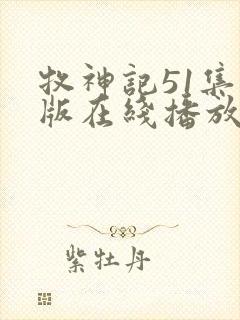 牧神記51集
版在綫播放
紫牡丹